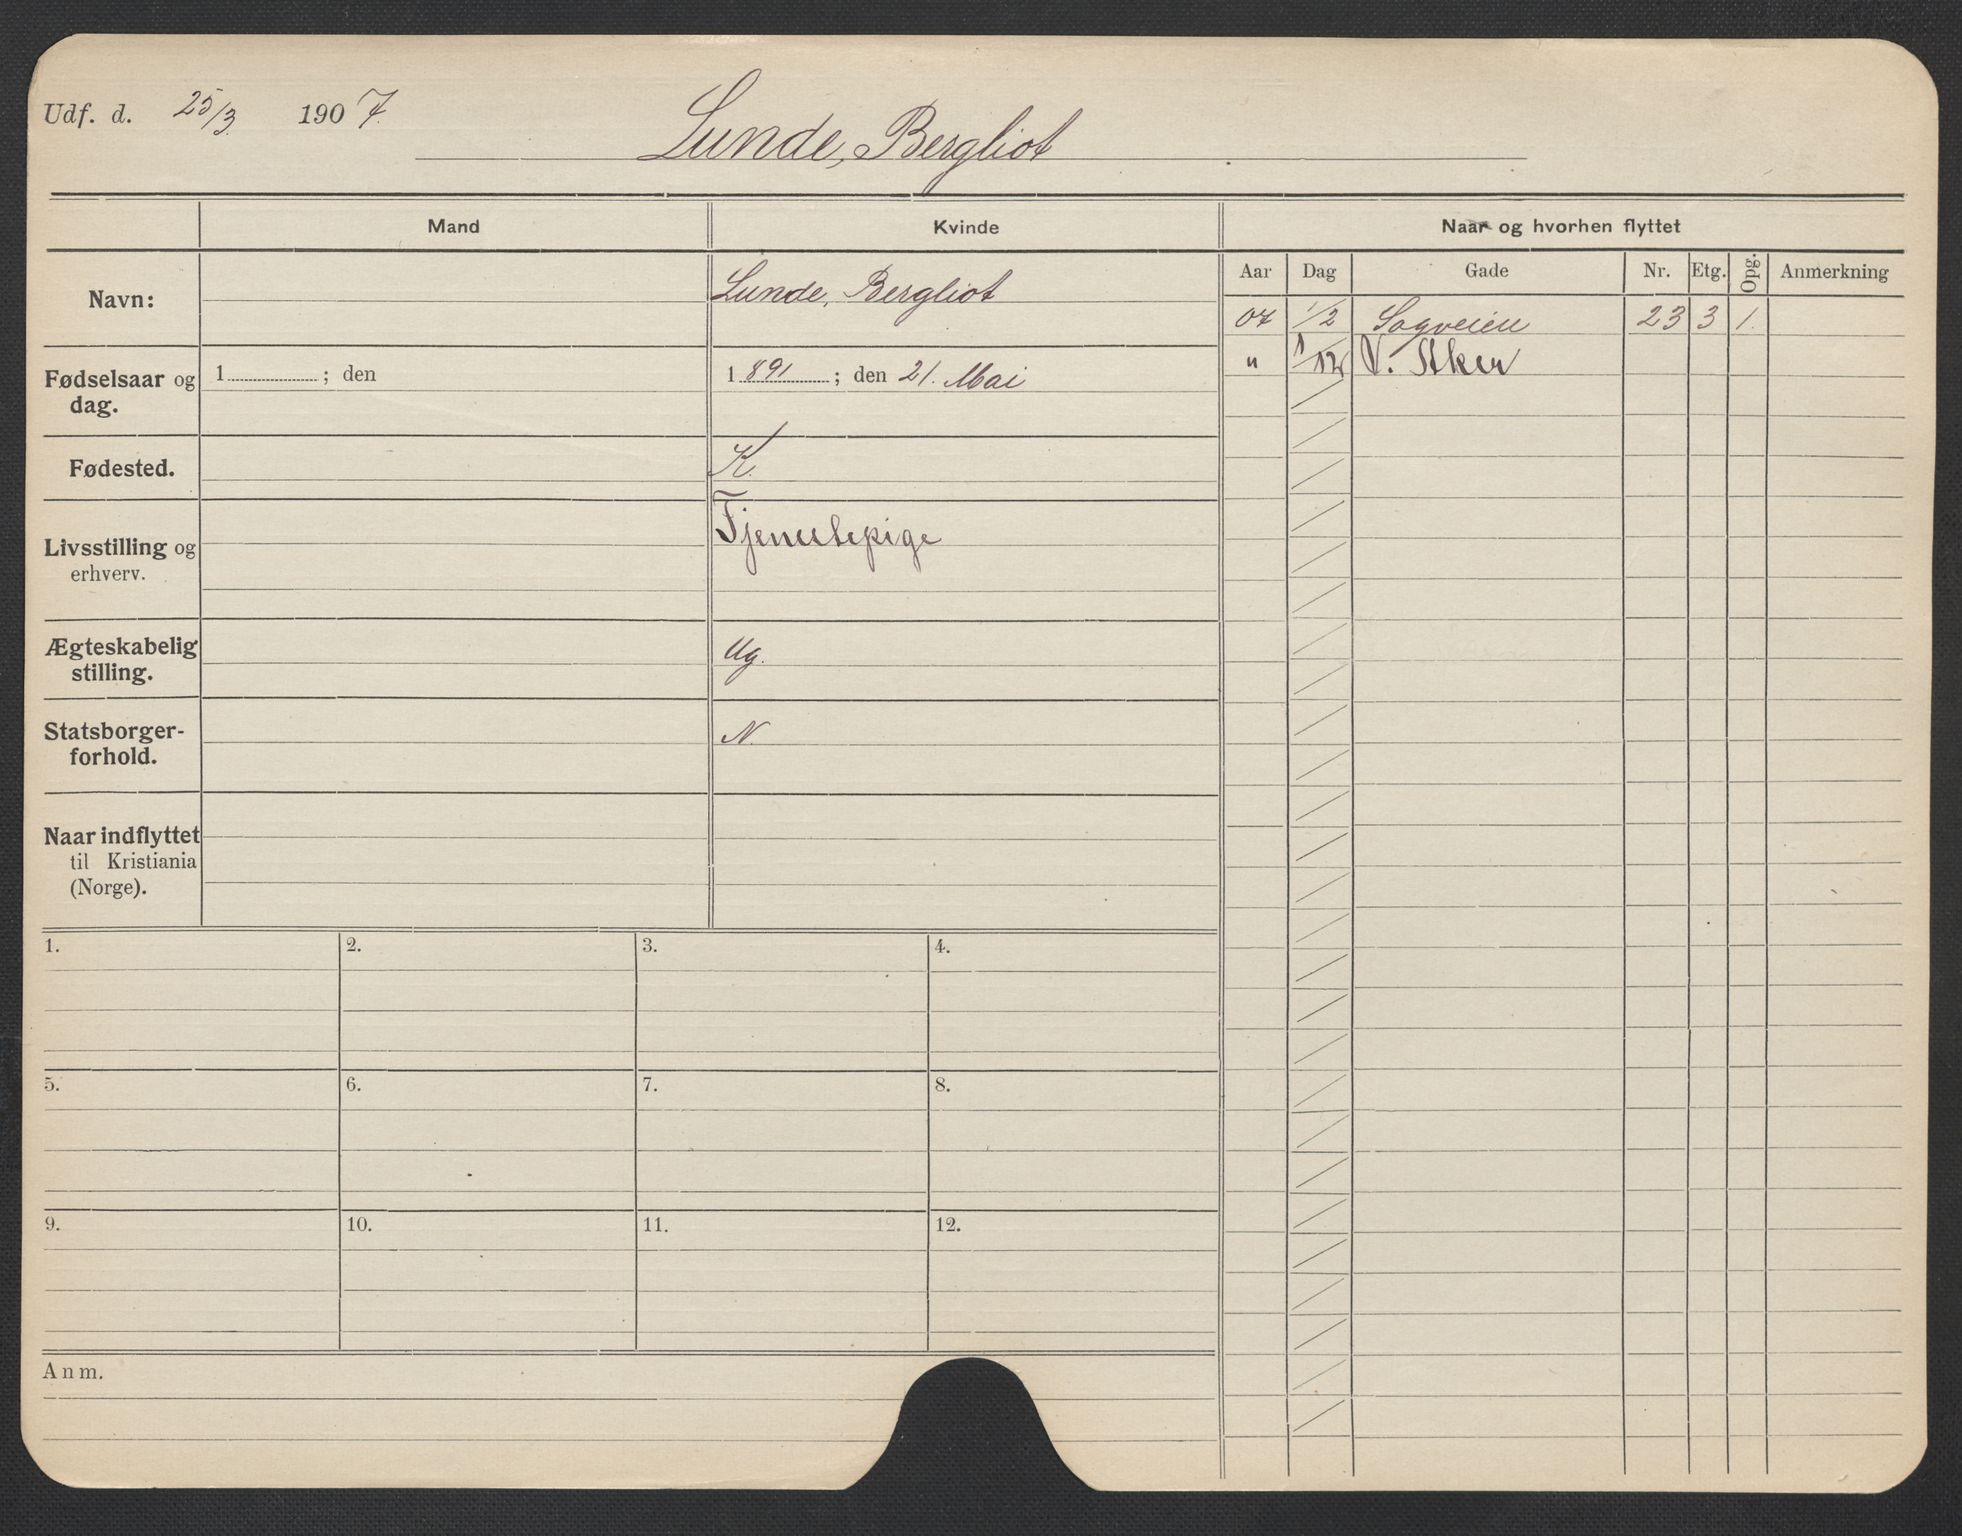 Udf. d. 25/3. 1907.
Lunde, Bergliot
Mand
Kvinde
Naar og hvorhen flyttet
Navn:
Lunde, Bergliot
Aar Dag Gade Nr. Etg. Opg. Anmerkning
07 1/2 Sagveien 23 3 1.
" 1/12 V. Aker
Fødselsaar og
dag.
1 ; den
1891 ; den 21. Mai
Fødested.
K.
Livsstilling og
erhverv.
Tjenestepige
Ægteskabelig
stilling.
Ug.
Statsborger-
forhold.
N.
Naar indflyttet
til Kristiania
(Norge).
1. 2. 3. 4.
5. 6. 7. 8.
9. 10. 11. 12.
Anm.